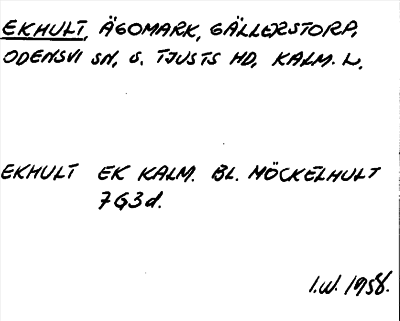 EKHULT, ÄGOMARK, GÄLLERSTORP,
ODENSVI SN, S. TJUSTS HD, KALM. L.
EKHULT EK KALM. BL. MÖCKELHULT
7G3d.
I.W. 1958.